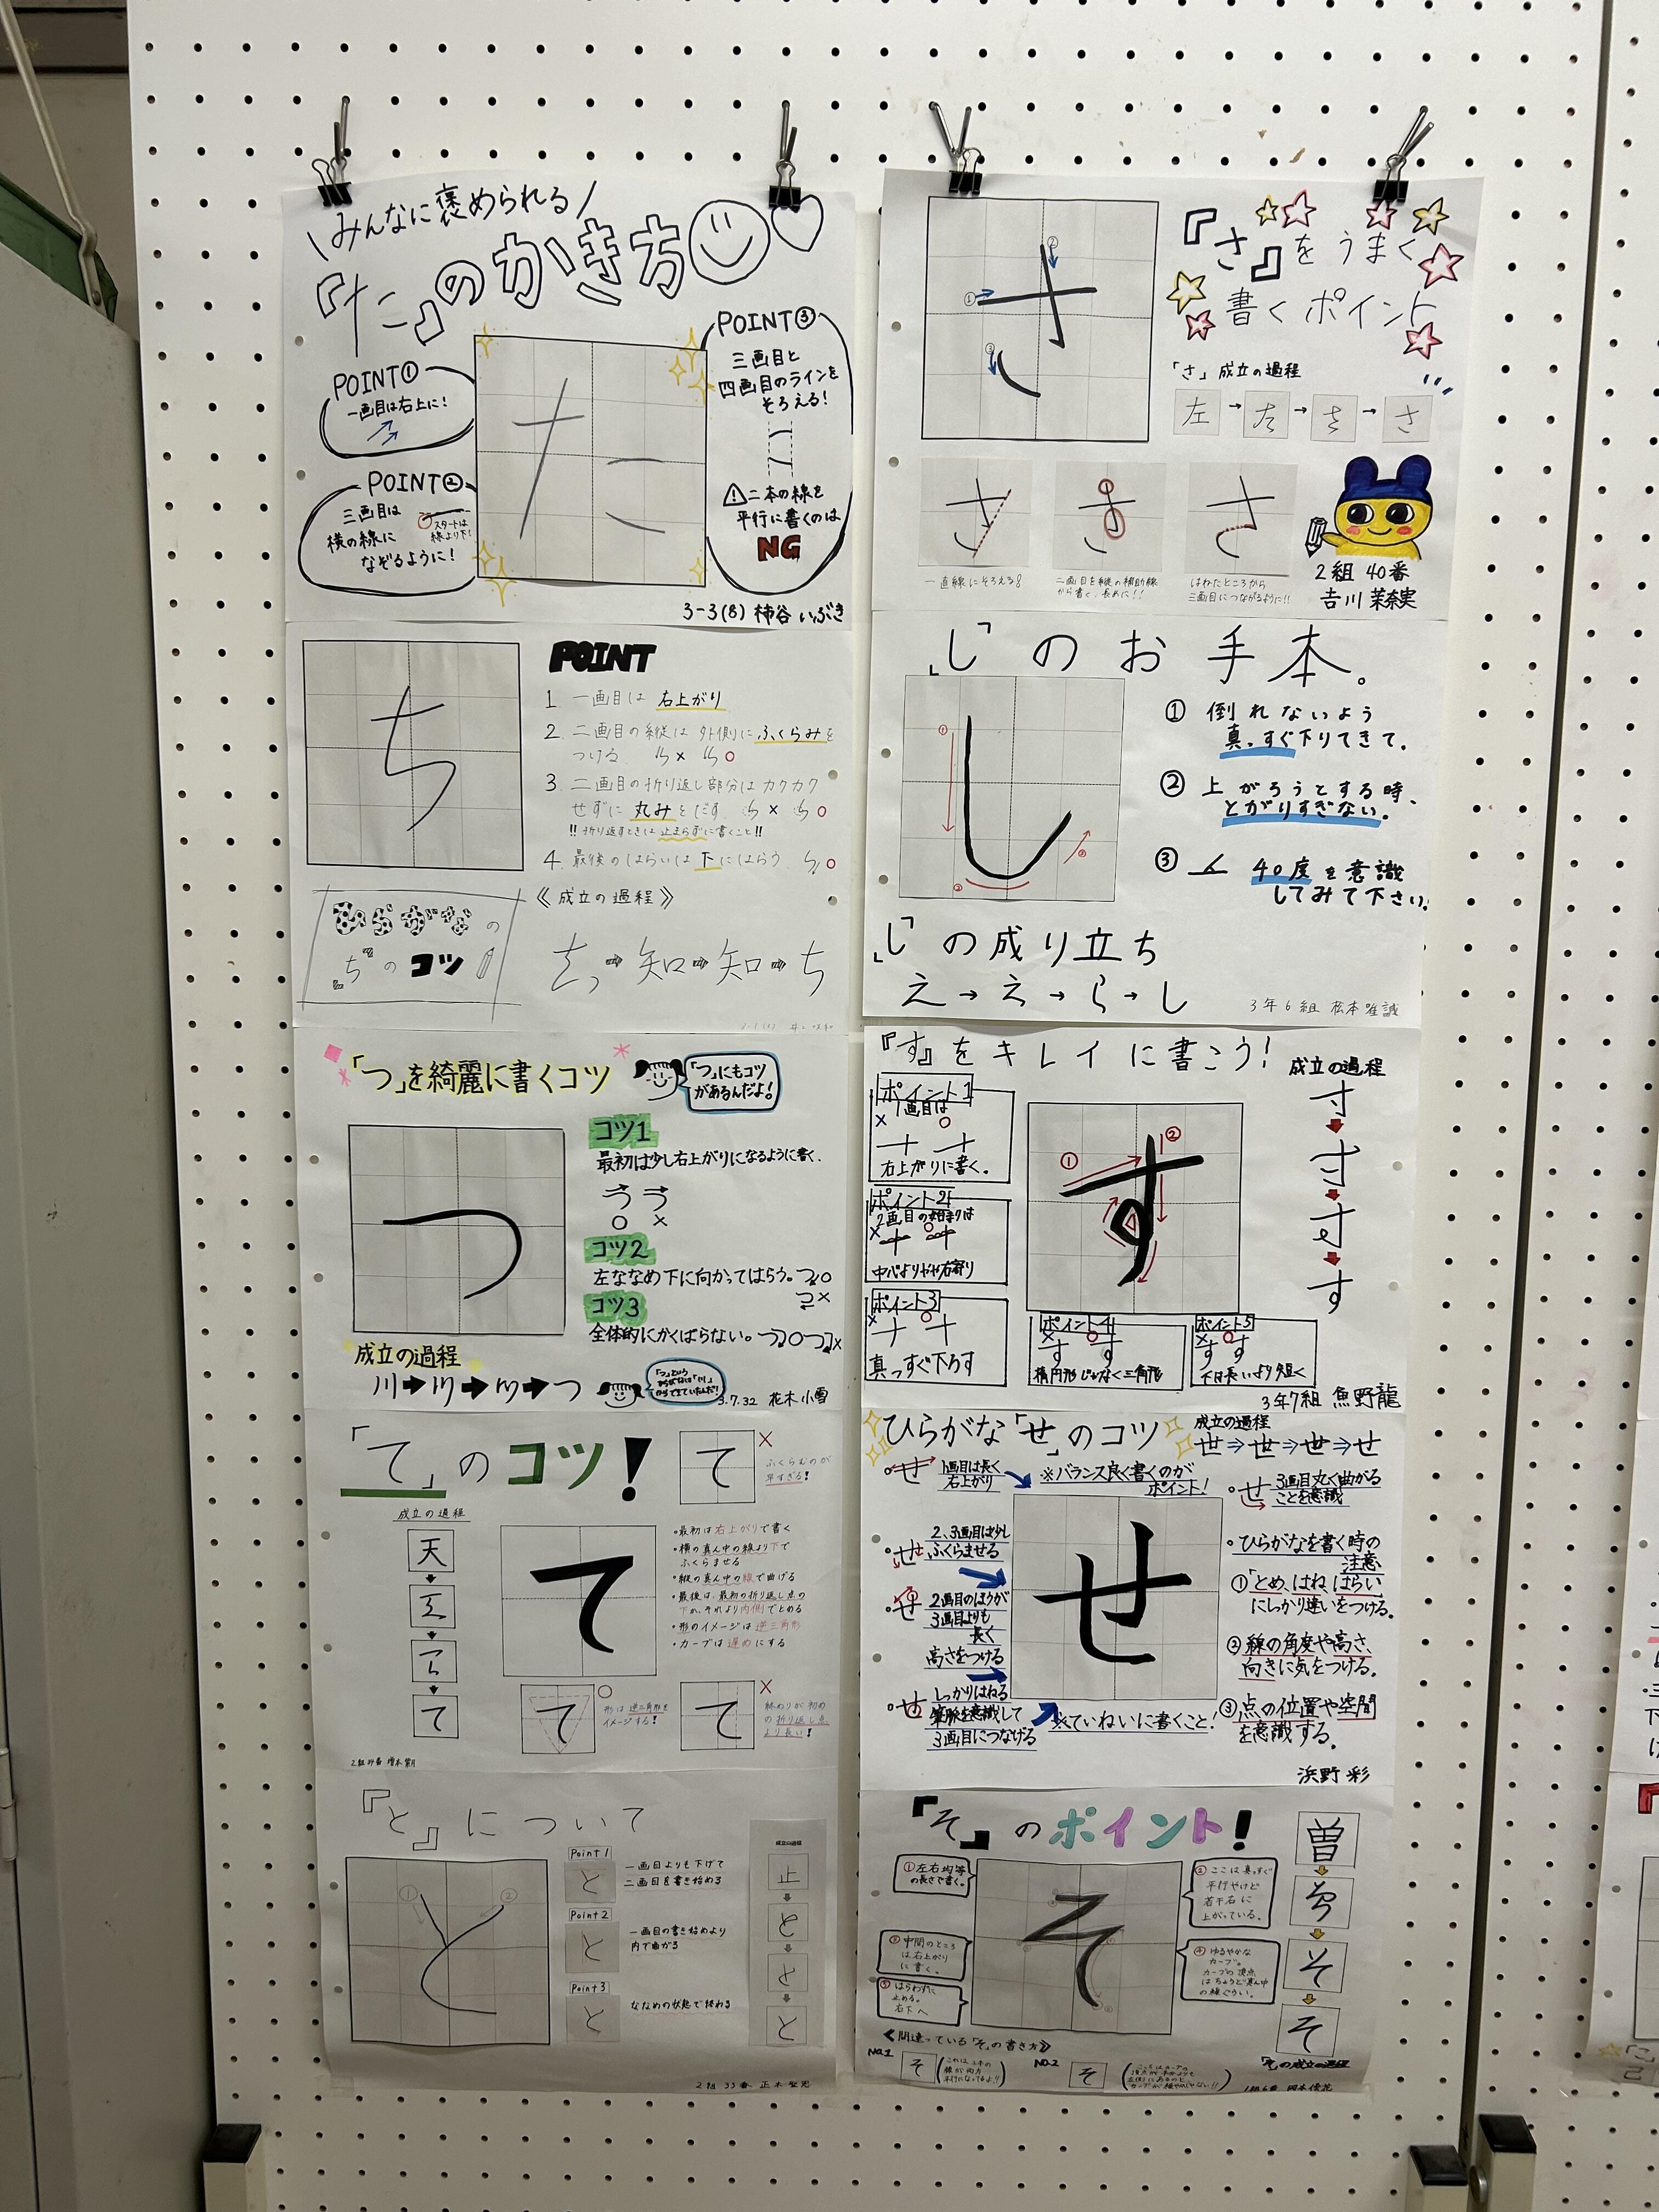 みんなに褒められる
『た』のかき方
POINT①
一画目は右上に!
POINT②
三画目は
横の線に
なぞるように!
スタートは
線より下!
POINT③
三画目と
四画目のラインを
そろえる!
二本の線を
平行に書くのは
NG
3-3(8) 柿谷 いぶき
ち
POINT
1. 一画目は 右上がり
2. 二画目の縦は 外側に ふくらみを
つける ×
3. 二画目の折り返し部分はカクカク
せずに 丸みをだす ×
!!折り返すときは止まらずに書くこと!!
4. 最後のはらいは下にはらう
ひらがなの
『ち』のコツ
《成立の過程》
知 知 ち
「つ」を綺麗に書くコツ
「つ」にもコツ
があるんだよ!
つ
コツ1
最初は少し右上がりになるように書く.
○ ×
コツ2
左ななめ下に向かってはらう。
コツ3
全体的にかくばらない。
成立の過程
川
つ
3.7.32 花木小雪
「て」のコツ!
て
×
ふくらむのが
早すぎる!
成立の過程
天
て
て
・最初は右上がりで書く
・横の真ん中の線より下で
ふくらませる
・縦の真ん中の線で曲げる
・最後は、最初の折り返し点の
下か、それより内側でとめる
・形のイメージは逆三角形
・カーブは遅めにする
て
○
形は逆三角形を
イメージする!
て
×
終わりが初め
の折り返し点
より長い!
『と』について
① ②
と
Point1
一画目よりも下げて
二画目を書き始める
Point2
一画目の書き始めより
内で曲がる
Point3
ななめの状態で終わる
成立の過程
止
と
と
と
2組 33番
『さ』をうまく
書くポイント
さ
① ② ③
「さ」成立の過程
左→
→さ
さ
一直線にそろえる!
二画目を縦の補助線
から書く、長めに!!
はねたところから
三画目につながるように!!
2組 40番
吉川 茉奈実
「し」のお手本。
し
① 倒れないよう
真っすぐ下りてきて.
② 上がろうとする時、
とがりすぎない.
③ 40度を意識
してみて下さい.
「し」の成り立ち
→し
3年6組 松本雅誠
『す』をキレイに書こう!
成立の過程
寸
す
ポイント1
1画目は
× ○
右上がりに書く。
ポイント2
2画目の始まりは
中心よりやや右寄り
ポイント3
真っすぐ下ろす
す
① ②
ポイント4
× ○
す す
楕円形じゃなく三角形
ポイント5
× ○
す す
下は長いより短く
3年7組 魚野龍
ひらがな「せ」のコツ
成立の過程
世⇒世⇒世⇒せ
1画目は長く
右上がり
※バランス良く書くのが
ポイント!
3画目丸く曲がる
ことを意識
2、3画目は少し
ふくらませる
2画目のほうが
3画目よりも
長く
高さをつける
しっかりはねる
筆脈を意識して
3画目につなげる
せ
・ひらがなを書く時の
注意
①「とめ、はね、はらい
にしっかり違いをつける.
②線の角度や高さ、
向きに気をつける.
③点の位置や空間
を意識する.
※ていねいに書くこと!
浜野 彩
『そ』のポイント!
①左右均等
の長さで書く。
②ここは真っすぐ
平行やけど
若干右に
上がっている。
③中間のところ
は右上がり
に書く。
④ゆるやかな
カーブ。
カーブの頂点
はちょうど真ん中
の線ぐらい。
⑤はらわずに
止める。
右下へ
そ
曽
そ
そ
「そ」の成立の過程
《間違っている「そ」の書き方》
NO.1
そ
NO.2
そ